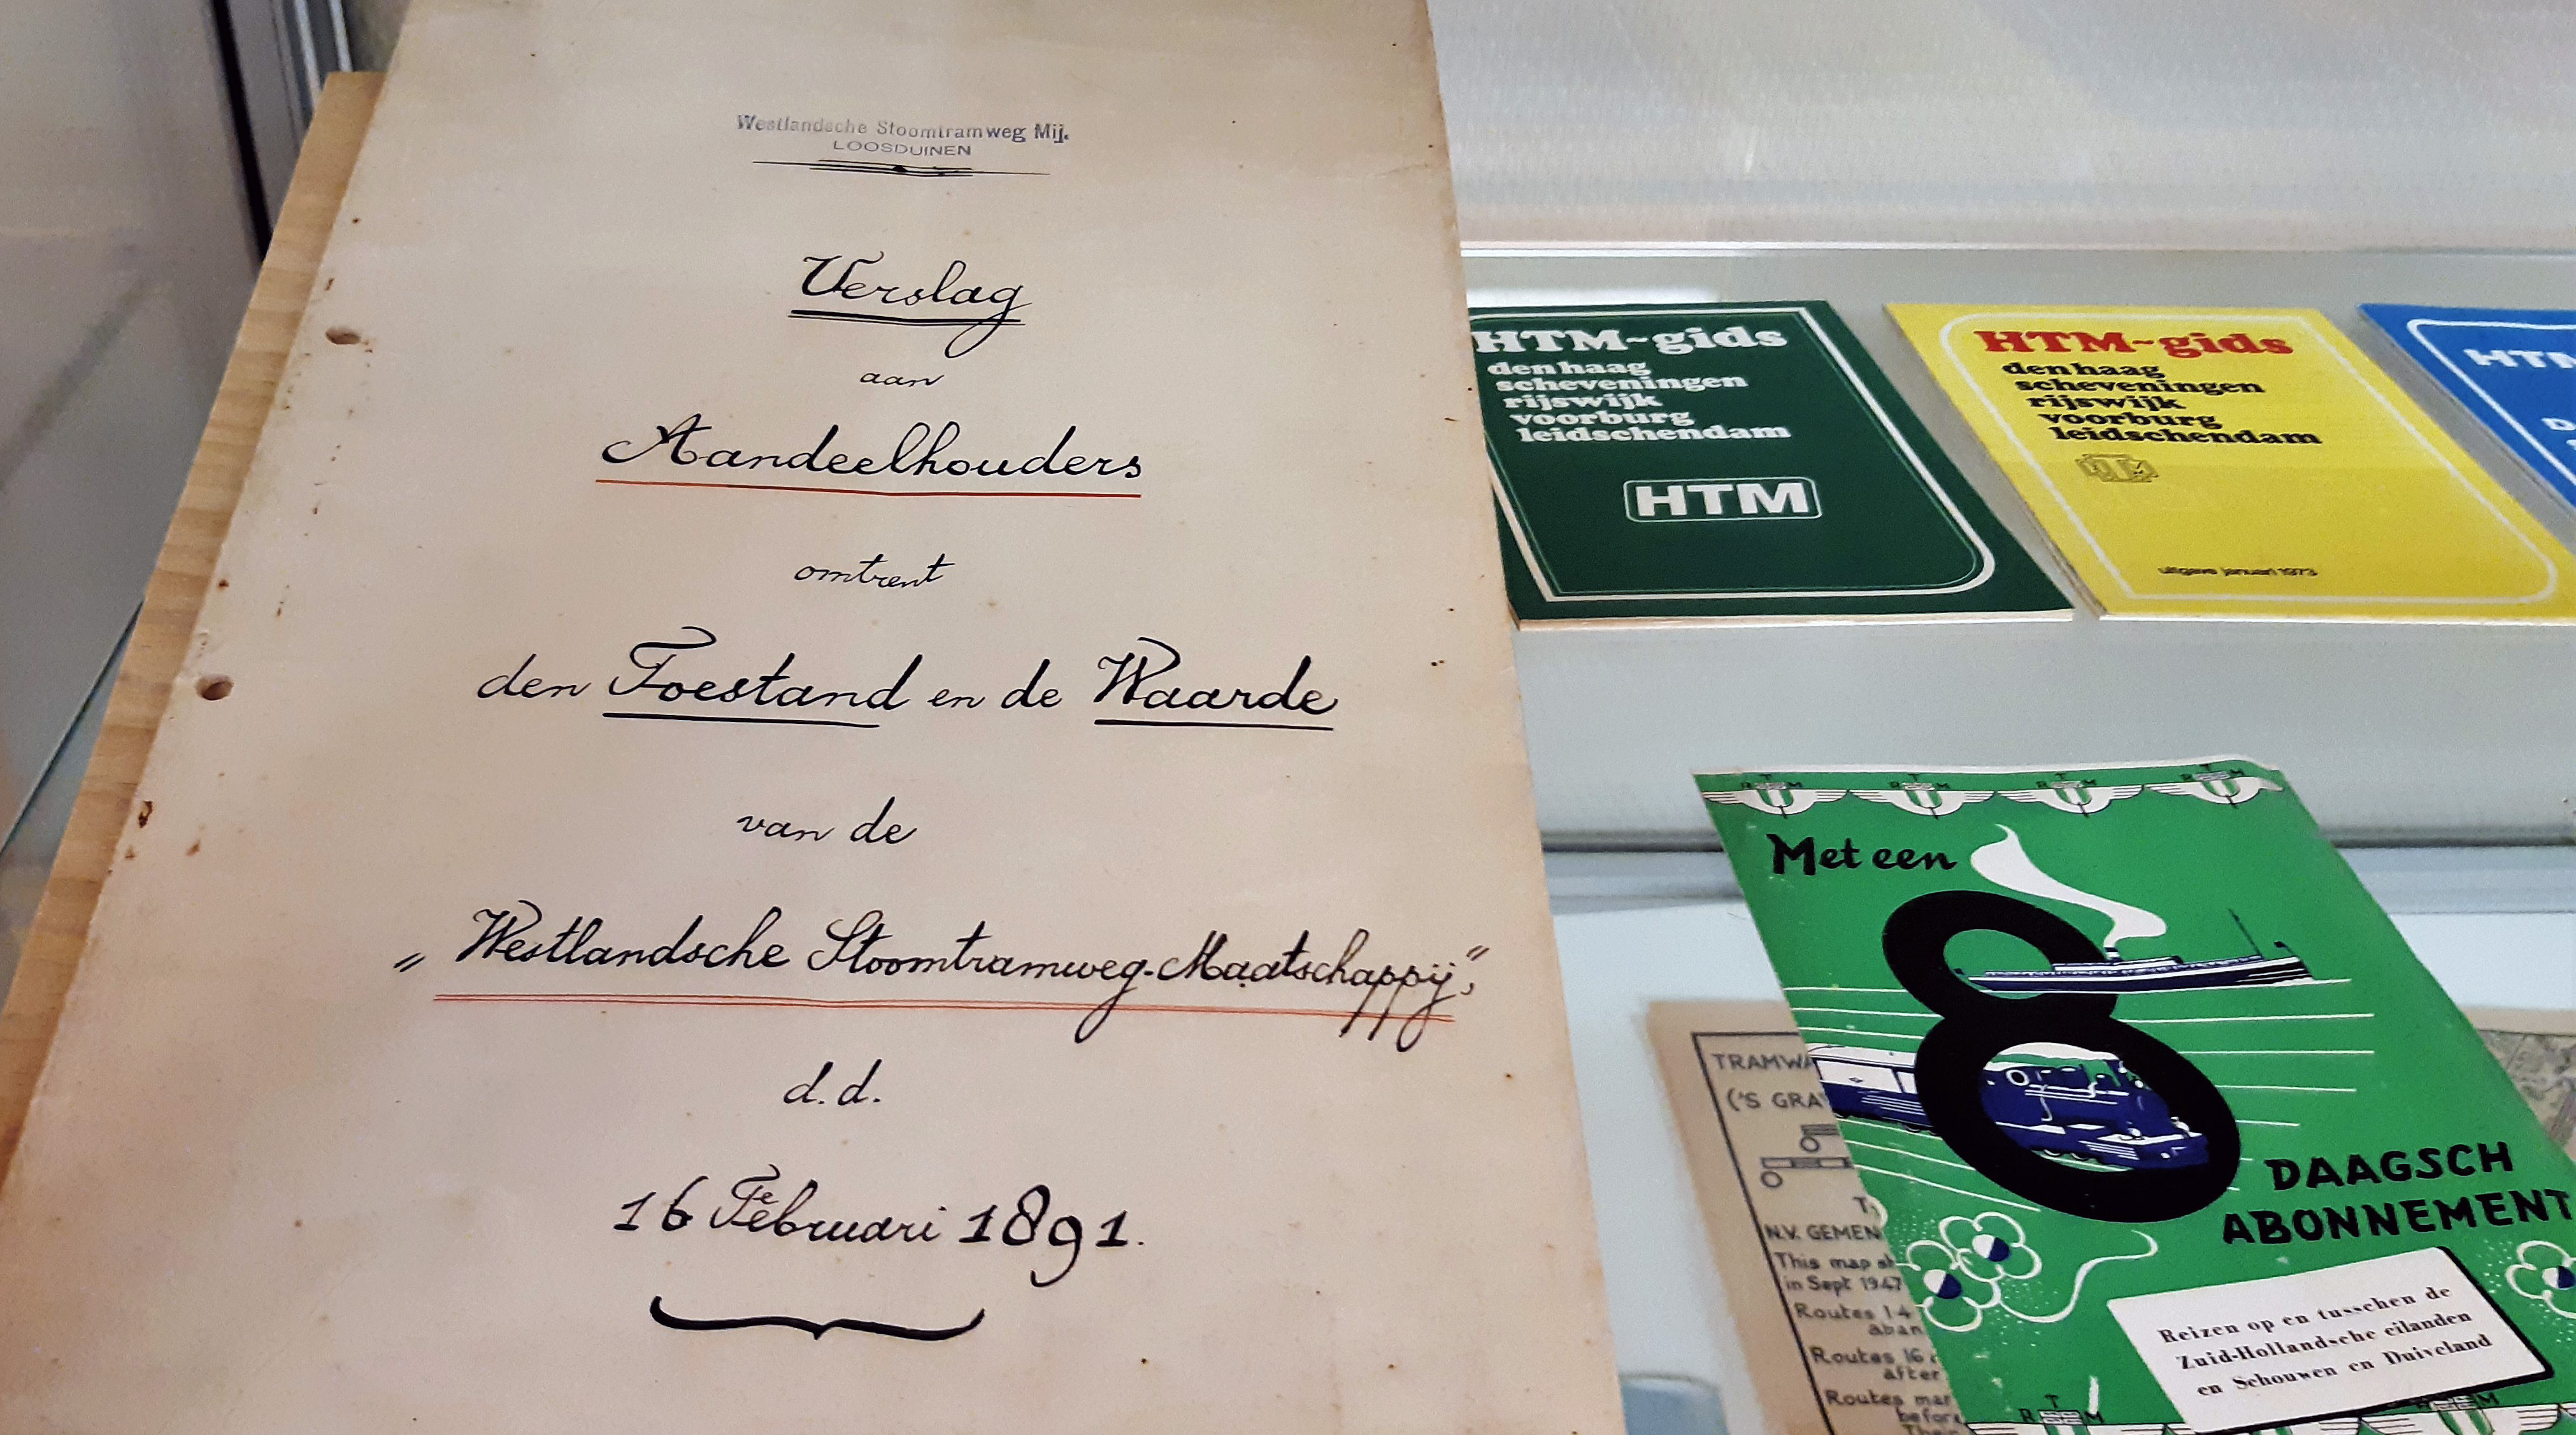 Westlandsche Stoomtramweg Mij.
LOOSDUINEN
Verslag
aan
Aandeelhouders
omtrent
den Toestand en de Waarde
van de
„Westlandsche Stoomtramweg-Maatschappij",
d.d.
16 Februari 1891.
HTM-gids
den haag
scheveningen
rijswijk
voorburg
leidschendam
HTM
HTM-gids
den haag
scheveningen
rijswijk
voorburg
leidschendam
uitgave januari 1973
RTM RTM RTM RTM
Met een
8
DAAGSCH
ABONNEMENT
Reizen op en tusschen de
Zuid-Hollandsche eilanden
en Schouwen en Duiveland
RTM
TRAMWA
('S GRA
N.V. GEMEN
This map
in Sept 1947
Routes 1-4
aban
Routes 16
after
Routes mar
before